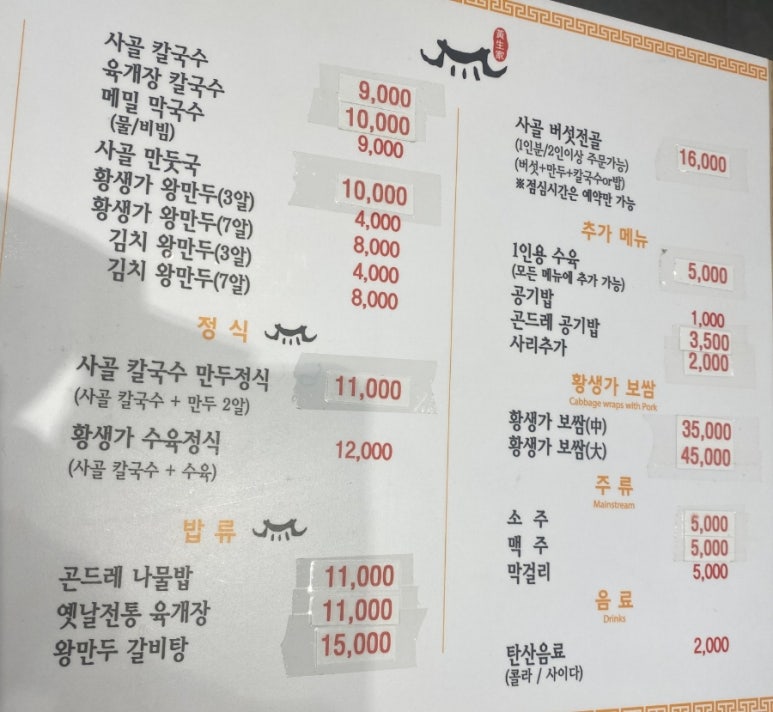 黃生家
사골 칼국수 9,000
육개장 칼국수 10,000
메밀 막국수 9,000
(물/비빔)
사골 만둣국 10,000
황생가 왕만두(3알) 4,000
황생가 왕만두(7알) 8,000
김치 왕만두(3알) 4,000
김치 왕만두(7알) 8,000
정 식
사골 칼국수 만두정식 11,000
(사골 칼국수 + 만두 2알)
황생가 수육정식 12,000
(사골 칼국수 + 수육)
밥 류
곤드레 나물밥 11,000
옛날전통 육개장 11,000
왕만두 갈비탕 15,000
사골 버섯전골 16,000
(1인분/2인이상 주문가능)
(버섯+만두+칼국수or밥)
※점심시간은 예약만 가능
추가 메뉴
1인용 수육 5,000
(모든 메뉴에 추가 가능)
공기밥 1,000
곤드레 공기밥 3,500
사리추가 2,000
황생가 보쌈
Cabbage wraps with Pork
황생가 보쌈(中) 35,000
황생가 보쌈(大) 45,000
주 류
Mainstream
소 주 5,000
맥 주 5,000
막걸리 5,000
음 료
Drinks
탄산음료 2,000
(콜라 / 사이다)